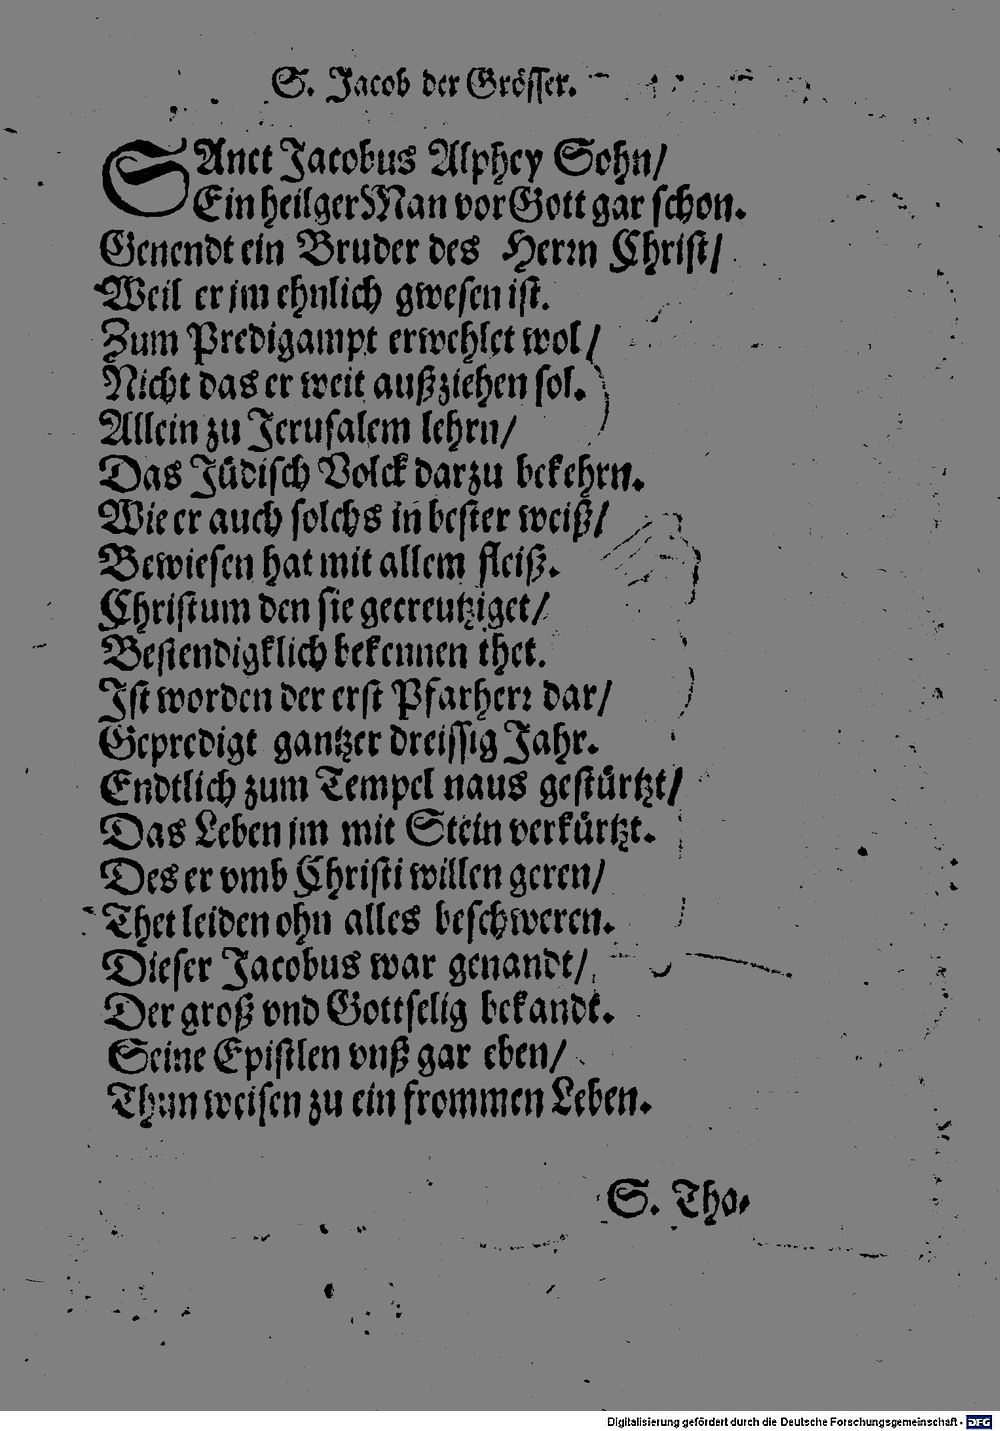 S. Jacob der Grösser.
SAnct Jacobus Alphey Sohn/
Ein heilger Man vor Gott gar schon.
Genendt ein Bruder des Herrn Christ/
Weil er jm ehnlich gwesen ist.
Zum Predigampt erwehlet wol/
Nicht das er weit außziehen sol.
Allein zu Jerusalem lehrn/
Das Jüdisch Volck darzu bekehrn.
Wie er auch solchs in bester weiß/
Bewiesen hat mit allem fleiß.
Christum den sie gecreutziget/
Bestendigklich bekennen thet.
Ist worden der erst Pfarherr dar/
Gepredigt gantzer dreissig Jahr.
Endtlich zum Tempel naus gestürtzt/
Das Leben jm mit Stein verkürtzt.
Des er vmb Christi willen geren/
Thet leiden ohn alles beschweren.
Dieser Jacobus war genandt/
Der groß vnd Gottselig bekandt.
Seine Epistlen vnß gar eben/
Thun weisen zu ein frommen Leben.
S. Tho-
Digitalisierung gefördert durch die Deutsche Forschungsgemeinschaft - DFG